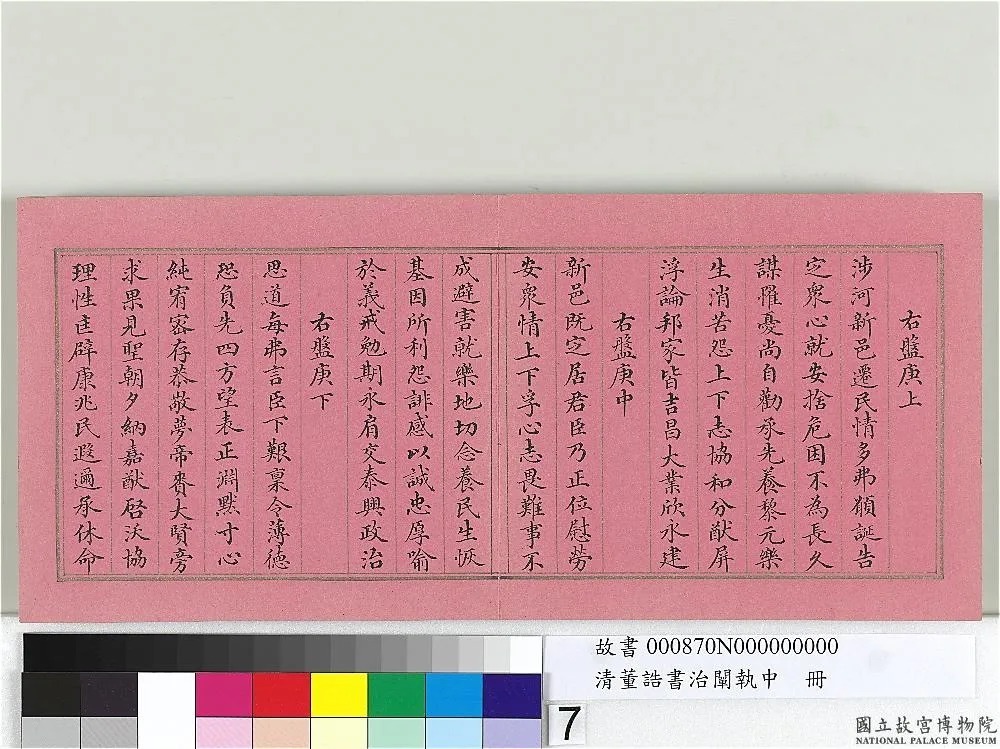 右盤庚上
涉河新邑遷民情多弗願誕告
定眾心就安捨危困不為長久
謀罹憂尚自勸承先養黎元樂
生消苦怨上下志協和分猷屏
浮論邦家皆吉昌大業欣永建
右盤庚中
新邑既定居君臣乃正位慰勞
安眾情上下孚心志畏難事不
成避害就樂地切念養民生恢
基因所利怨誹感以誠忠厚喻
於義戒勉期永肩交泰興政治
右盤庚下
思道每弗言臣下艱稟令薄德
恐負先四方望表正淵默寸心
純宥密存恭敬夢帝賚大賢旁
求果見聖朝夕納嘉猷啓沃協
理性匡辟康兆民遐邇承休命
故書 000870N000000000
清董誥書治闡執中 冊
7
國立故宮博物院
NATIONAL PALACE MUSEUM